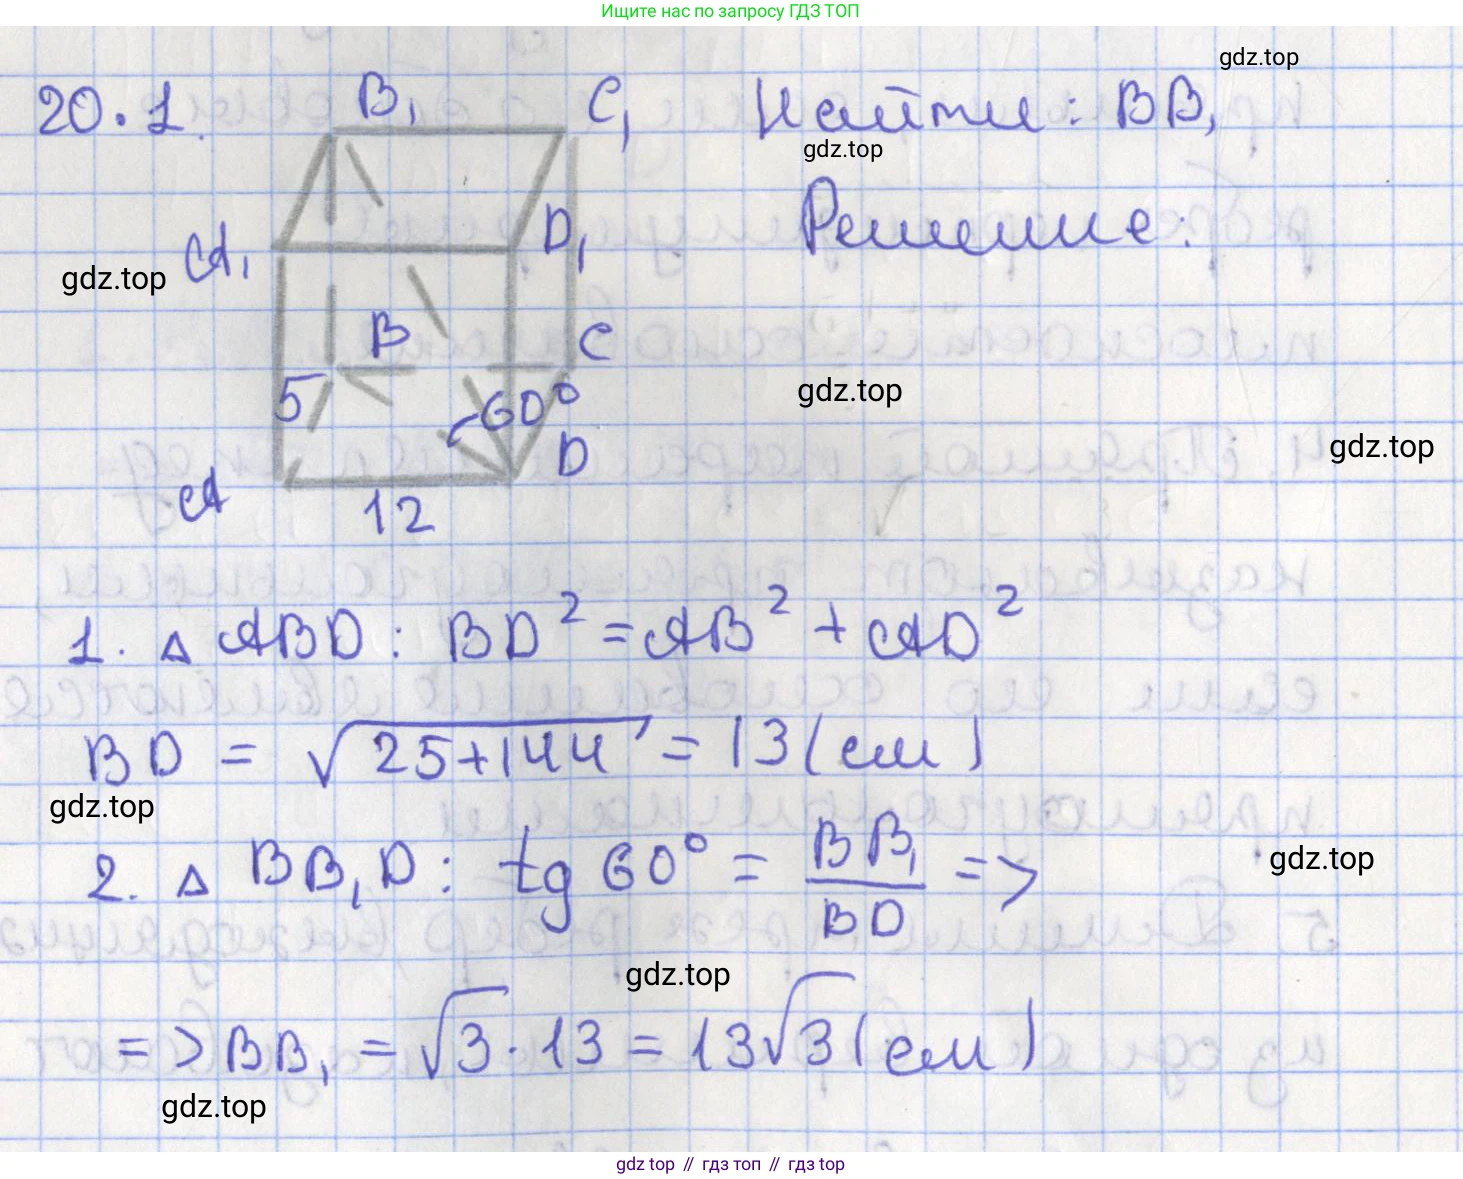 Ищите нас по запросу ГДЗ ТОП
gdz.top
20.1.
B₁
C₁
Найти: BB₁
gdz.top
Решение:
A₁
D₁
gdz.top
B
C
5
60°
gdz.top
D
gdz.top
A
12
1. △ ABD: BD² = AB² + AD²
BD = √25+144 = 13 (см)
gdz.top
2. △ BB₁D: tg 60° = BB₁/BD =>
gdz.top
gdz.top
=> BB₁ = √3 · 13 = 13√3 (см)
gdz.top
gdz top // гдз топ // gdz top